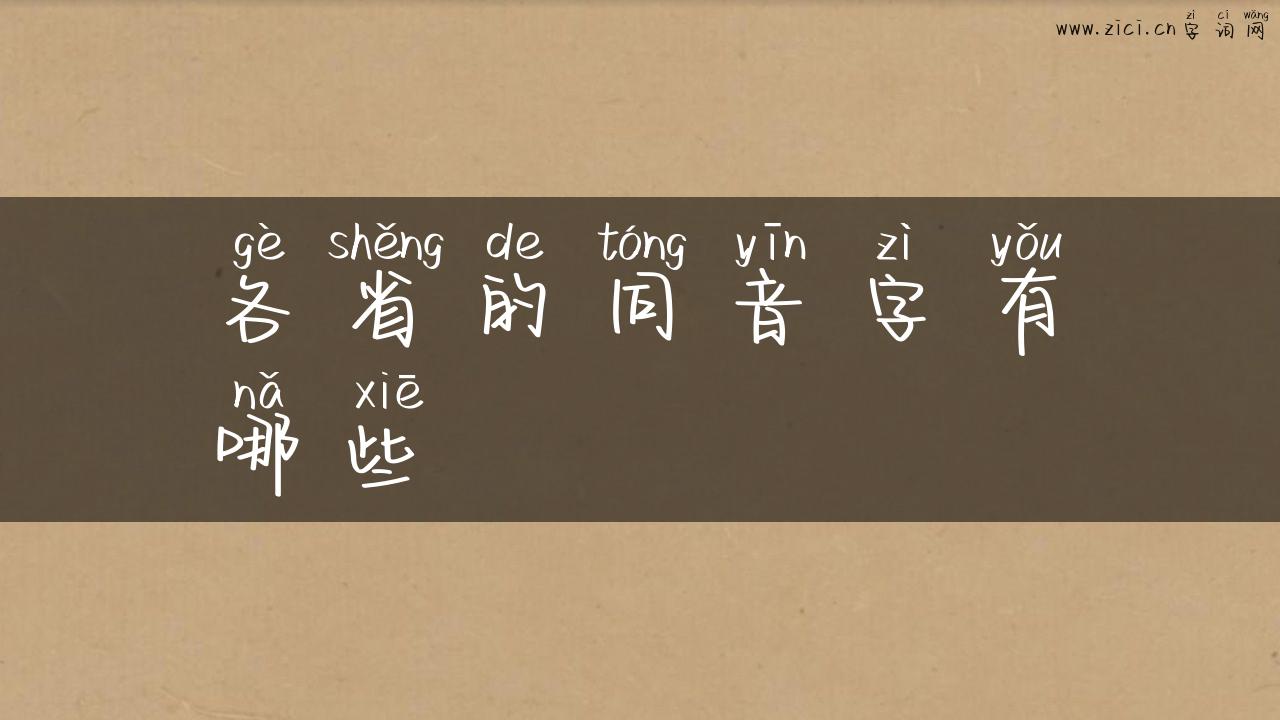 zì cí wǎng
www.zici.cn 字词网
gè shěng de tóng yīn zì yǒu
各省的同音字有
nǎ xiē
哪些